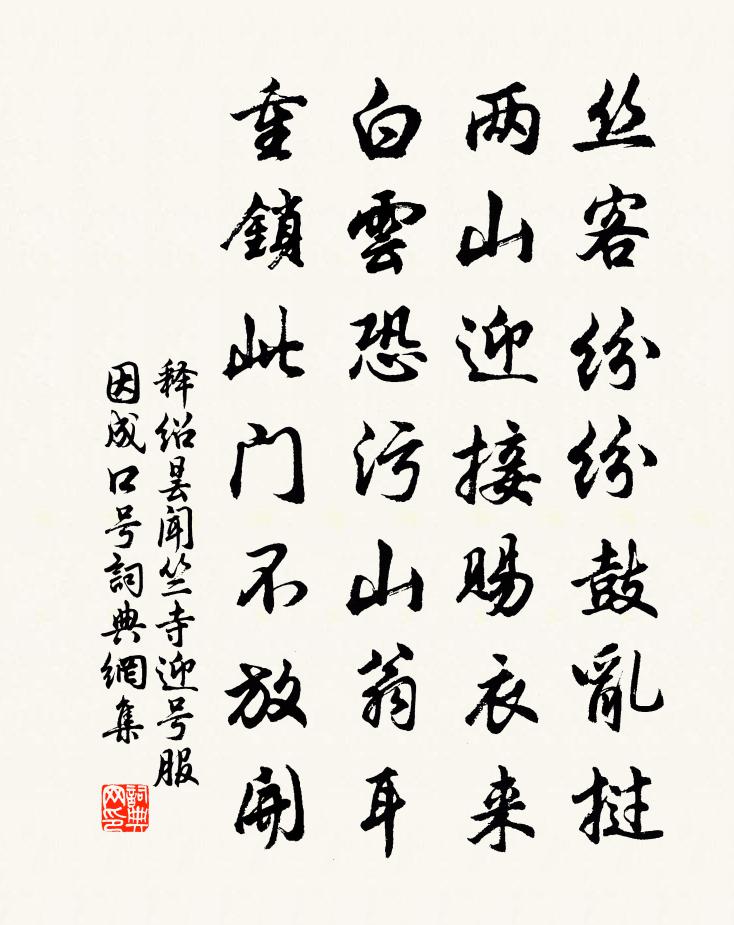 丝客纷纷鼓亂挝
两山迎接賜衣来
白雲恐污山翁耳
重鎖此门不放開
释绍昙闻竺寺迎号服
因成口号詞典網集
詞典网印